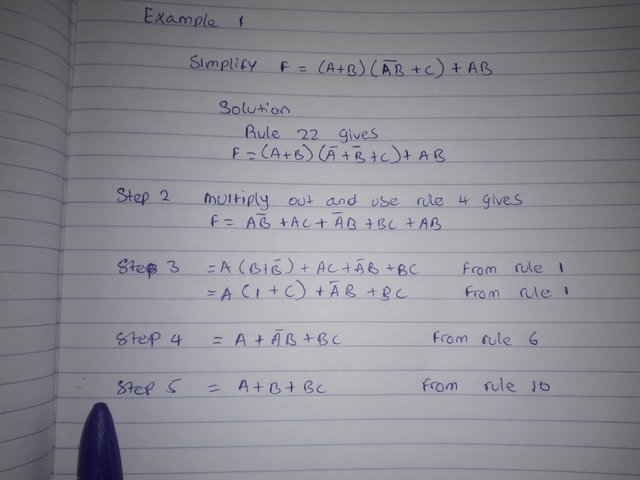 Example 1
Simplify F = (A+B)(A̅B̅ + C) + AB
Solution
Rule 22 gives
F = (A+B)(A̅ + B̅ + C) + AB
Step 2 multiply out and use rule 4 gives
F = AB̅ + AC + A̅B + BC + AB
Step 3 = A(B+B̅) + AC + A̅B + BC from rule 1
= A(1 + C) + A̅B + BC from rule 1
Step 4 = A + A̅B + BC from rule 6
Step 5 = A + B + BC from rule 10